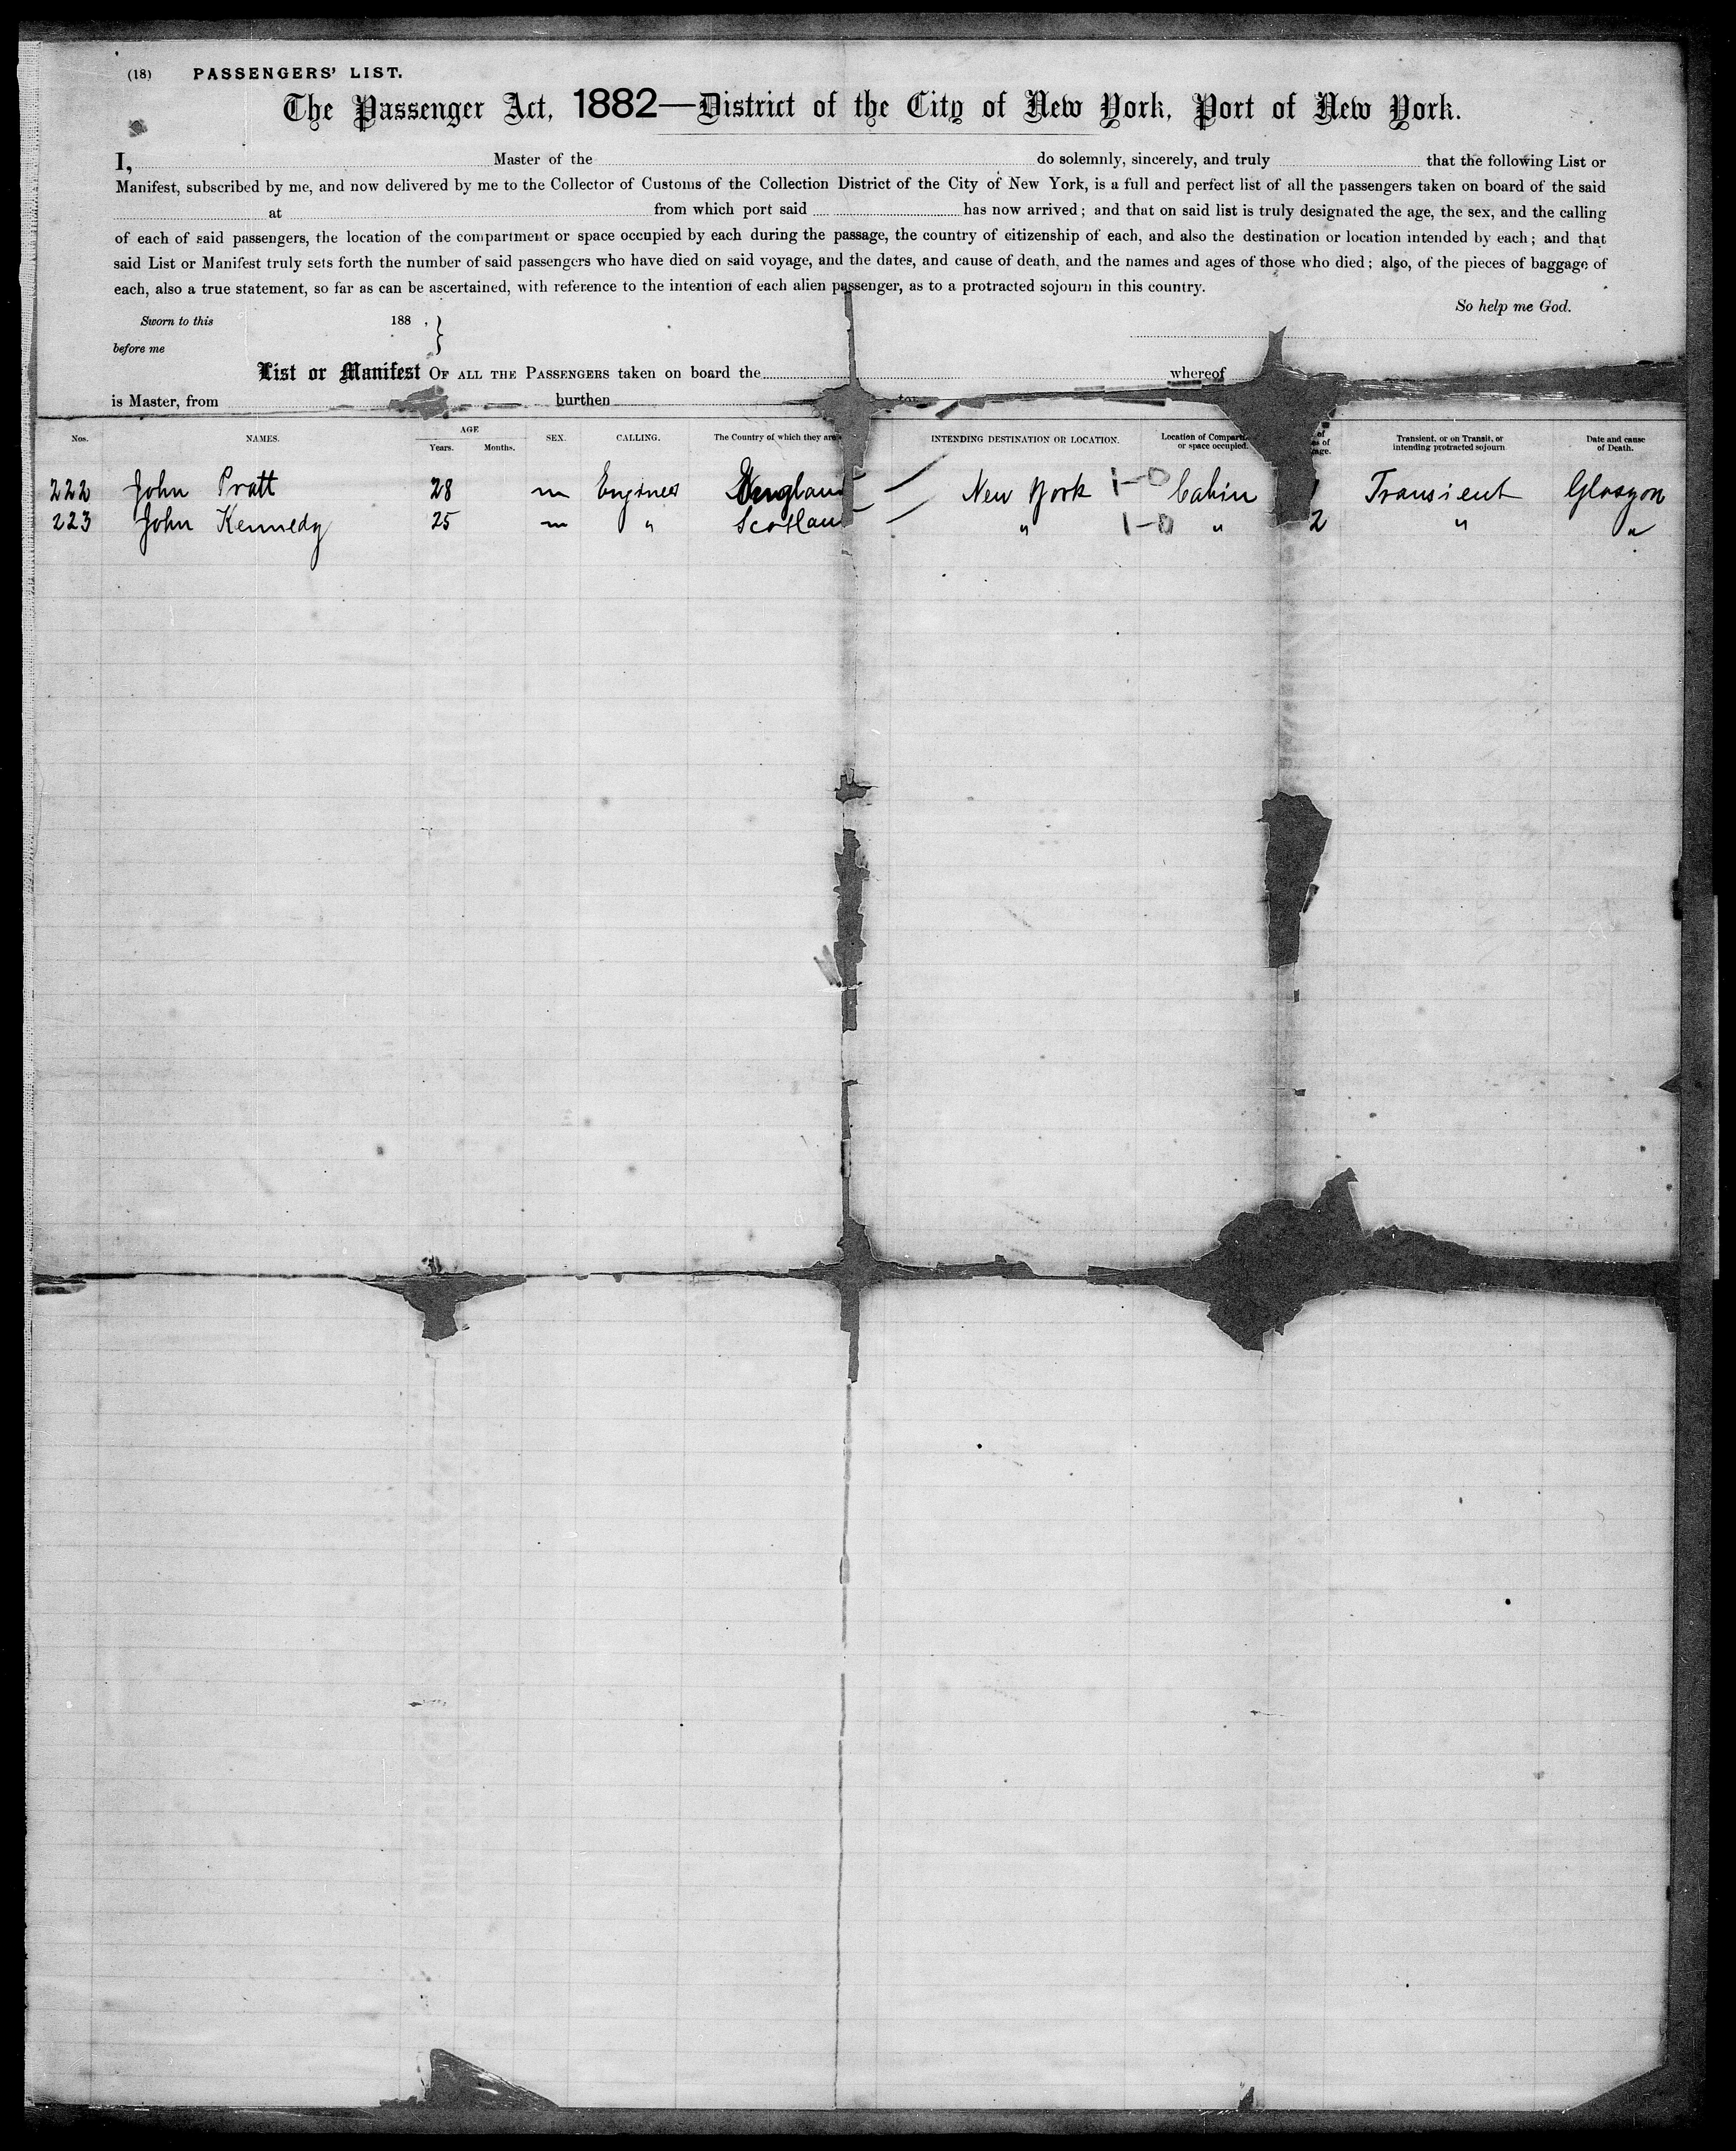 (18) PASSENGERS' LIST.
The Passenger Act, 1882—District of the City of New York, Port of New York.
I, Master of the do solemnly, sincerely, and truly that the following List or
Manifest, subscribed by me, and now delivered by me to the Collector of Customs of the Collection District of the City of New York, is a full and perfect list of all the passengers taken on board of the said
at from which port said has now arrived; and that on said list is truly designated the age, the sex, and the calling
of each of said passengers, the location of the compartment or space occupied by each during the passage, the country of citizenship of each, and also the destination or location intended by each; and that
said List or Manifest truly sets forth the number of said passengers who have died on said voyage, and the dates, and cause of death, and the names and ages of those who died; also, of the pieces of baggage of
each, also a true statement, so far as can be ascertained, with reference to the intention of each alien passenger, as to a protracted sojourn in this country.
So help me God.
Sworn to this 188 , }
before me
List or Manifest OF ALL THE PASSENGERS taken on board the whereof
is Master, from burthen
Nos. NAMES. AGE Years. Months. SEX. CALLING. The Country of which they are INTENDING DESTINATION OR LOCATION. Location of or space occupied. of Transient, or on Transit, or intending protracted sojourn Date and cause of Death.
222 John Pratt 28 m Engineer England New York 1-0 Cabin 1 Transient Glasgow
223 John Kennedy 25 m " Scotland " 1-0 " 2 " "